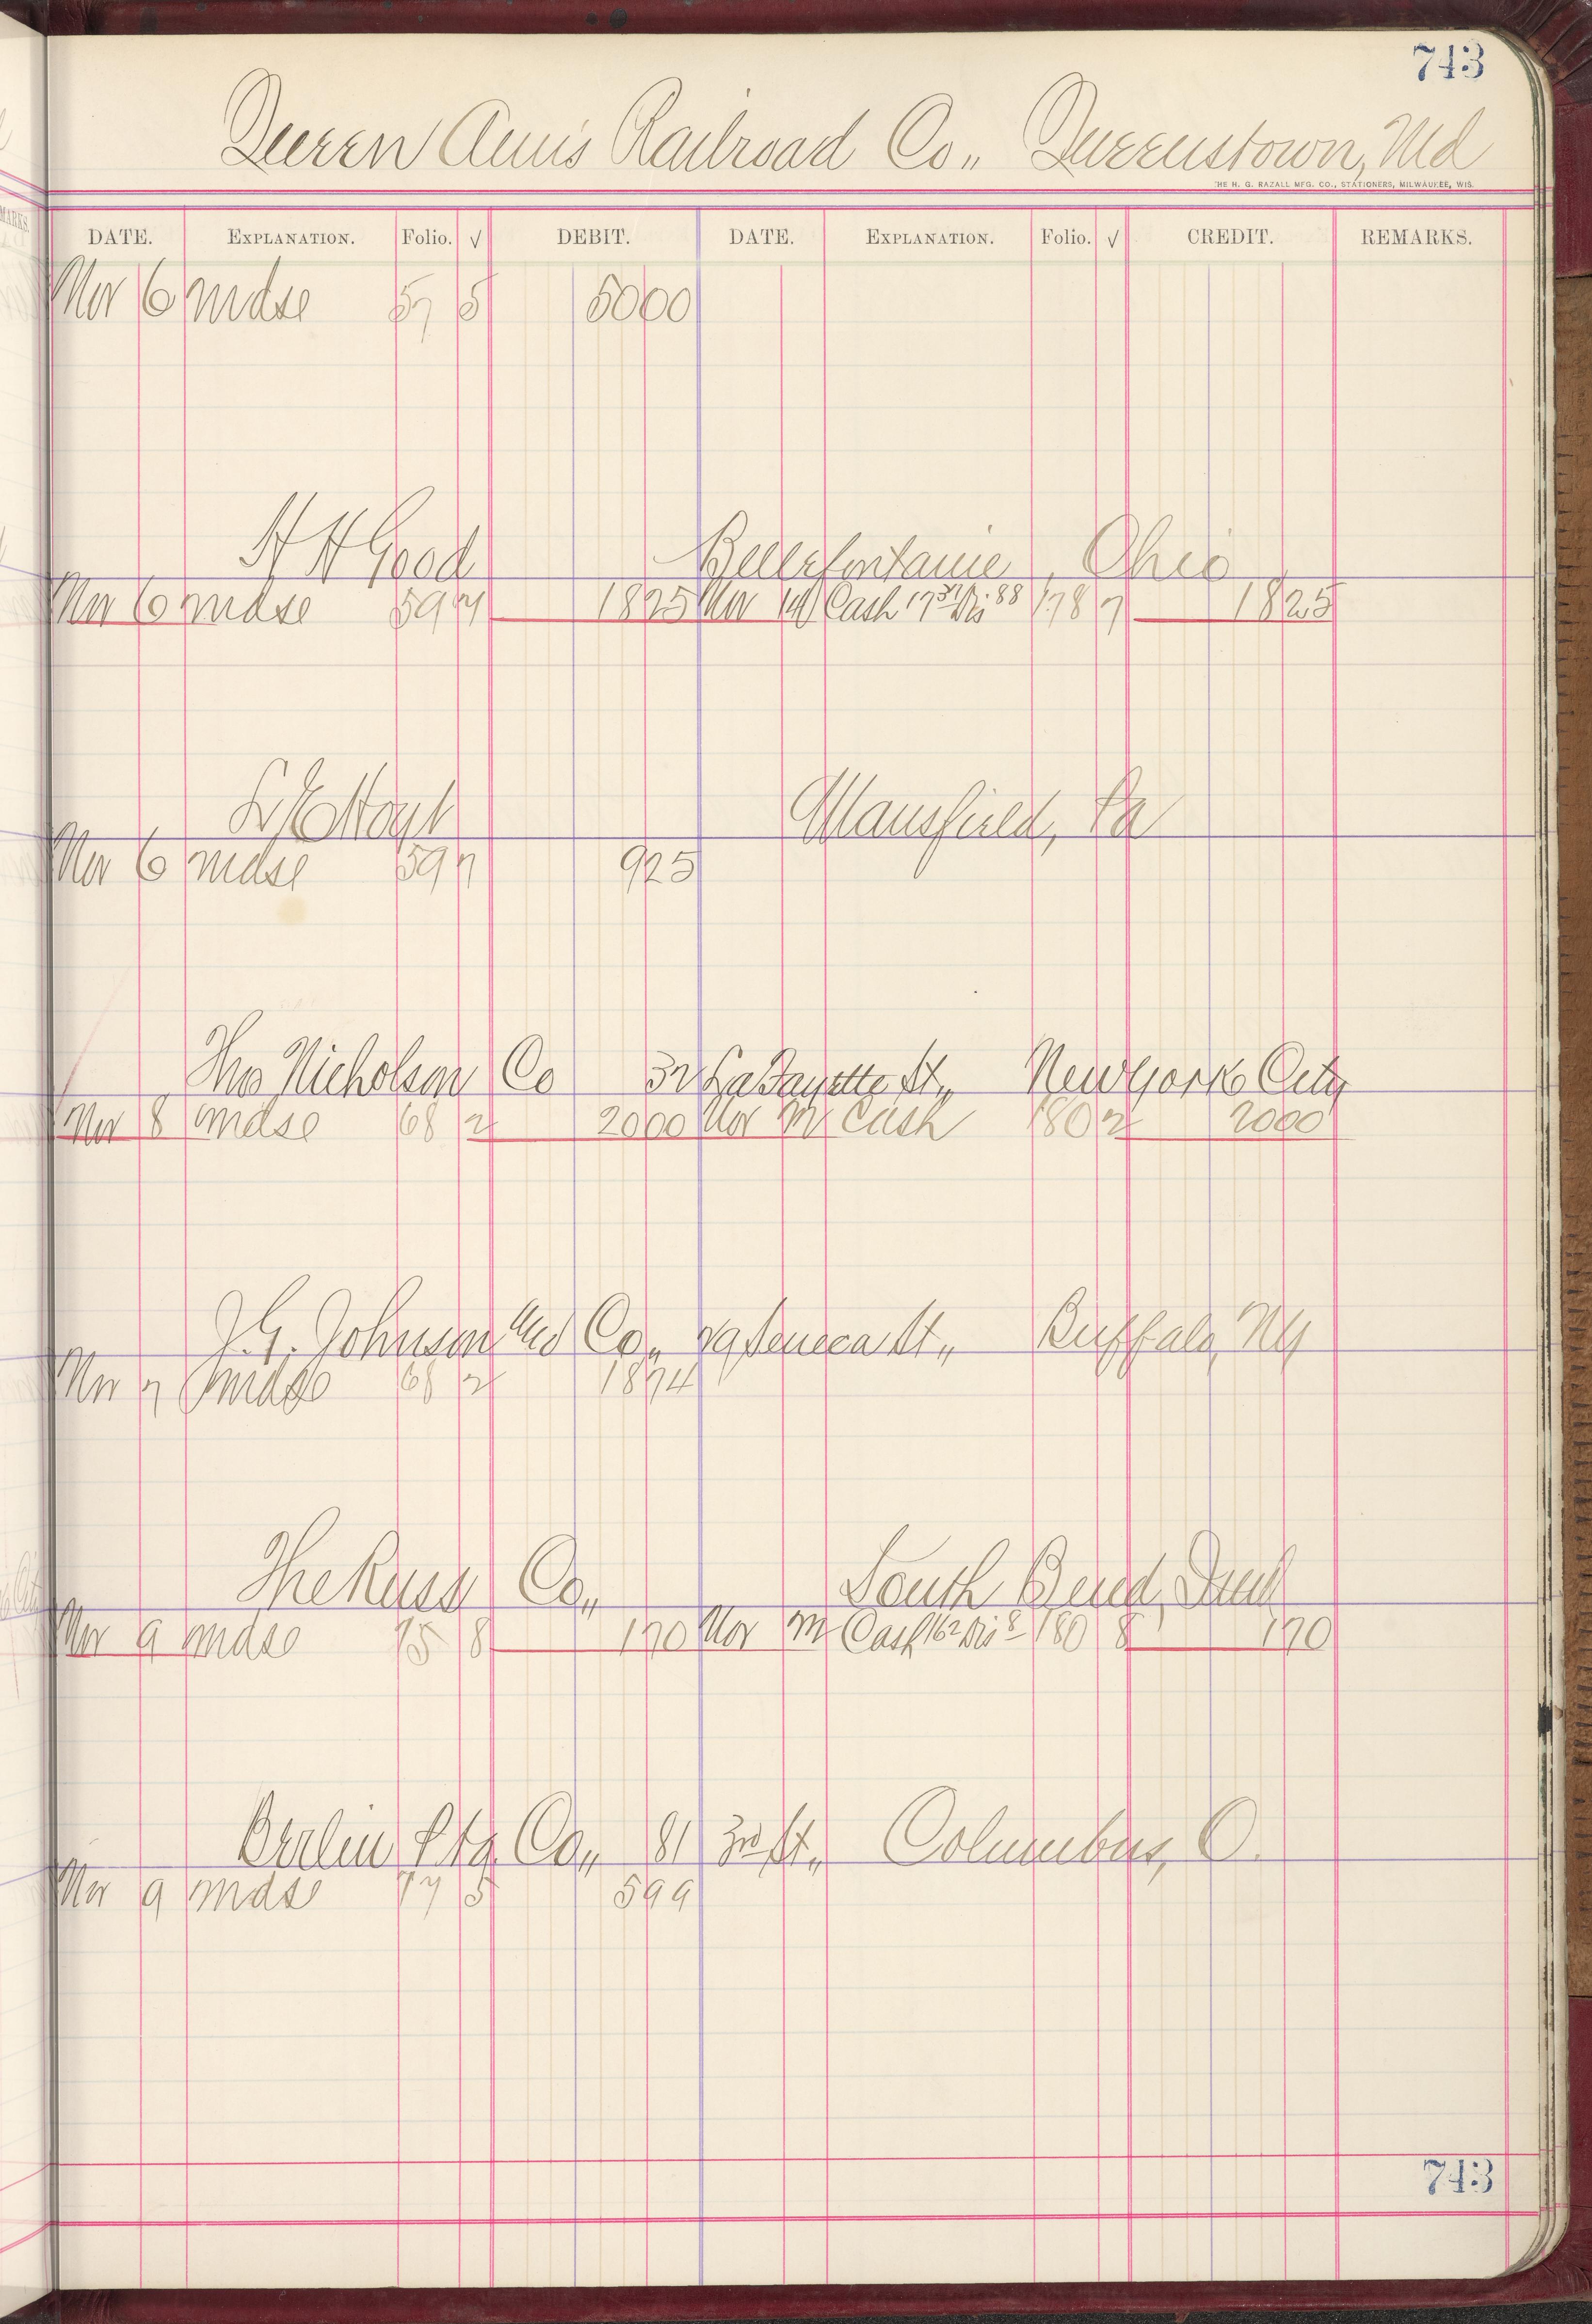 743
Queen Ann's Railroad Co., Queenstown, Md
THE H. G. RAZALL MFG. CO., STATIONERS, MILWAUKEE, WIS.
DATE. EXPLANATION. Folio. √ DEBIT. DATE. EXPLANATION. Folio. √ CREDIT. REMARKS.
Nov 6 mdse 57 5 5000
H H Good Bellefontaine, Ohio
Nov 6 mdse 59 7 1825 Nov 14 Cash 17 37 Dis 88 178 7 1825
L E Hoyt Mansfield, Pa
Nov 6 mdse 59 7 925
Thos Nicholson Co 32 LaFayette St., New York City
Nov 8 mdse 68 2 2000 Nov Cash 180 2 2000
J. G. Johnson and Co., 29 Seneca St., Buffalo, NY
Nov 7 mdse 68 2 1874
The Russ Co., South Bend, Ind
Nov 9 mdse 75 8 170 Nov Cash 162 Dis 8 180 8 170
Berlin Ptg Co., 81 3rd St., Columbus, O.
Nov 9 mdse 77 5 599
743